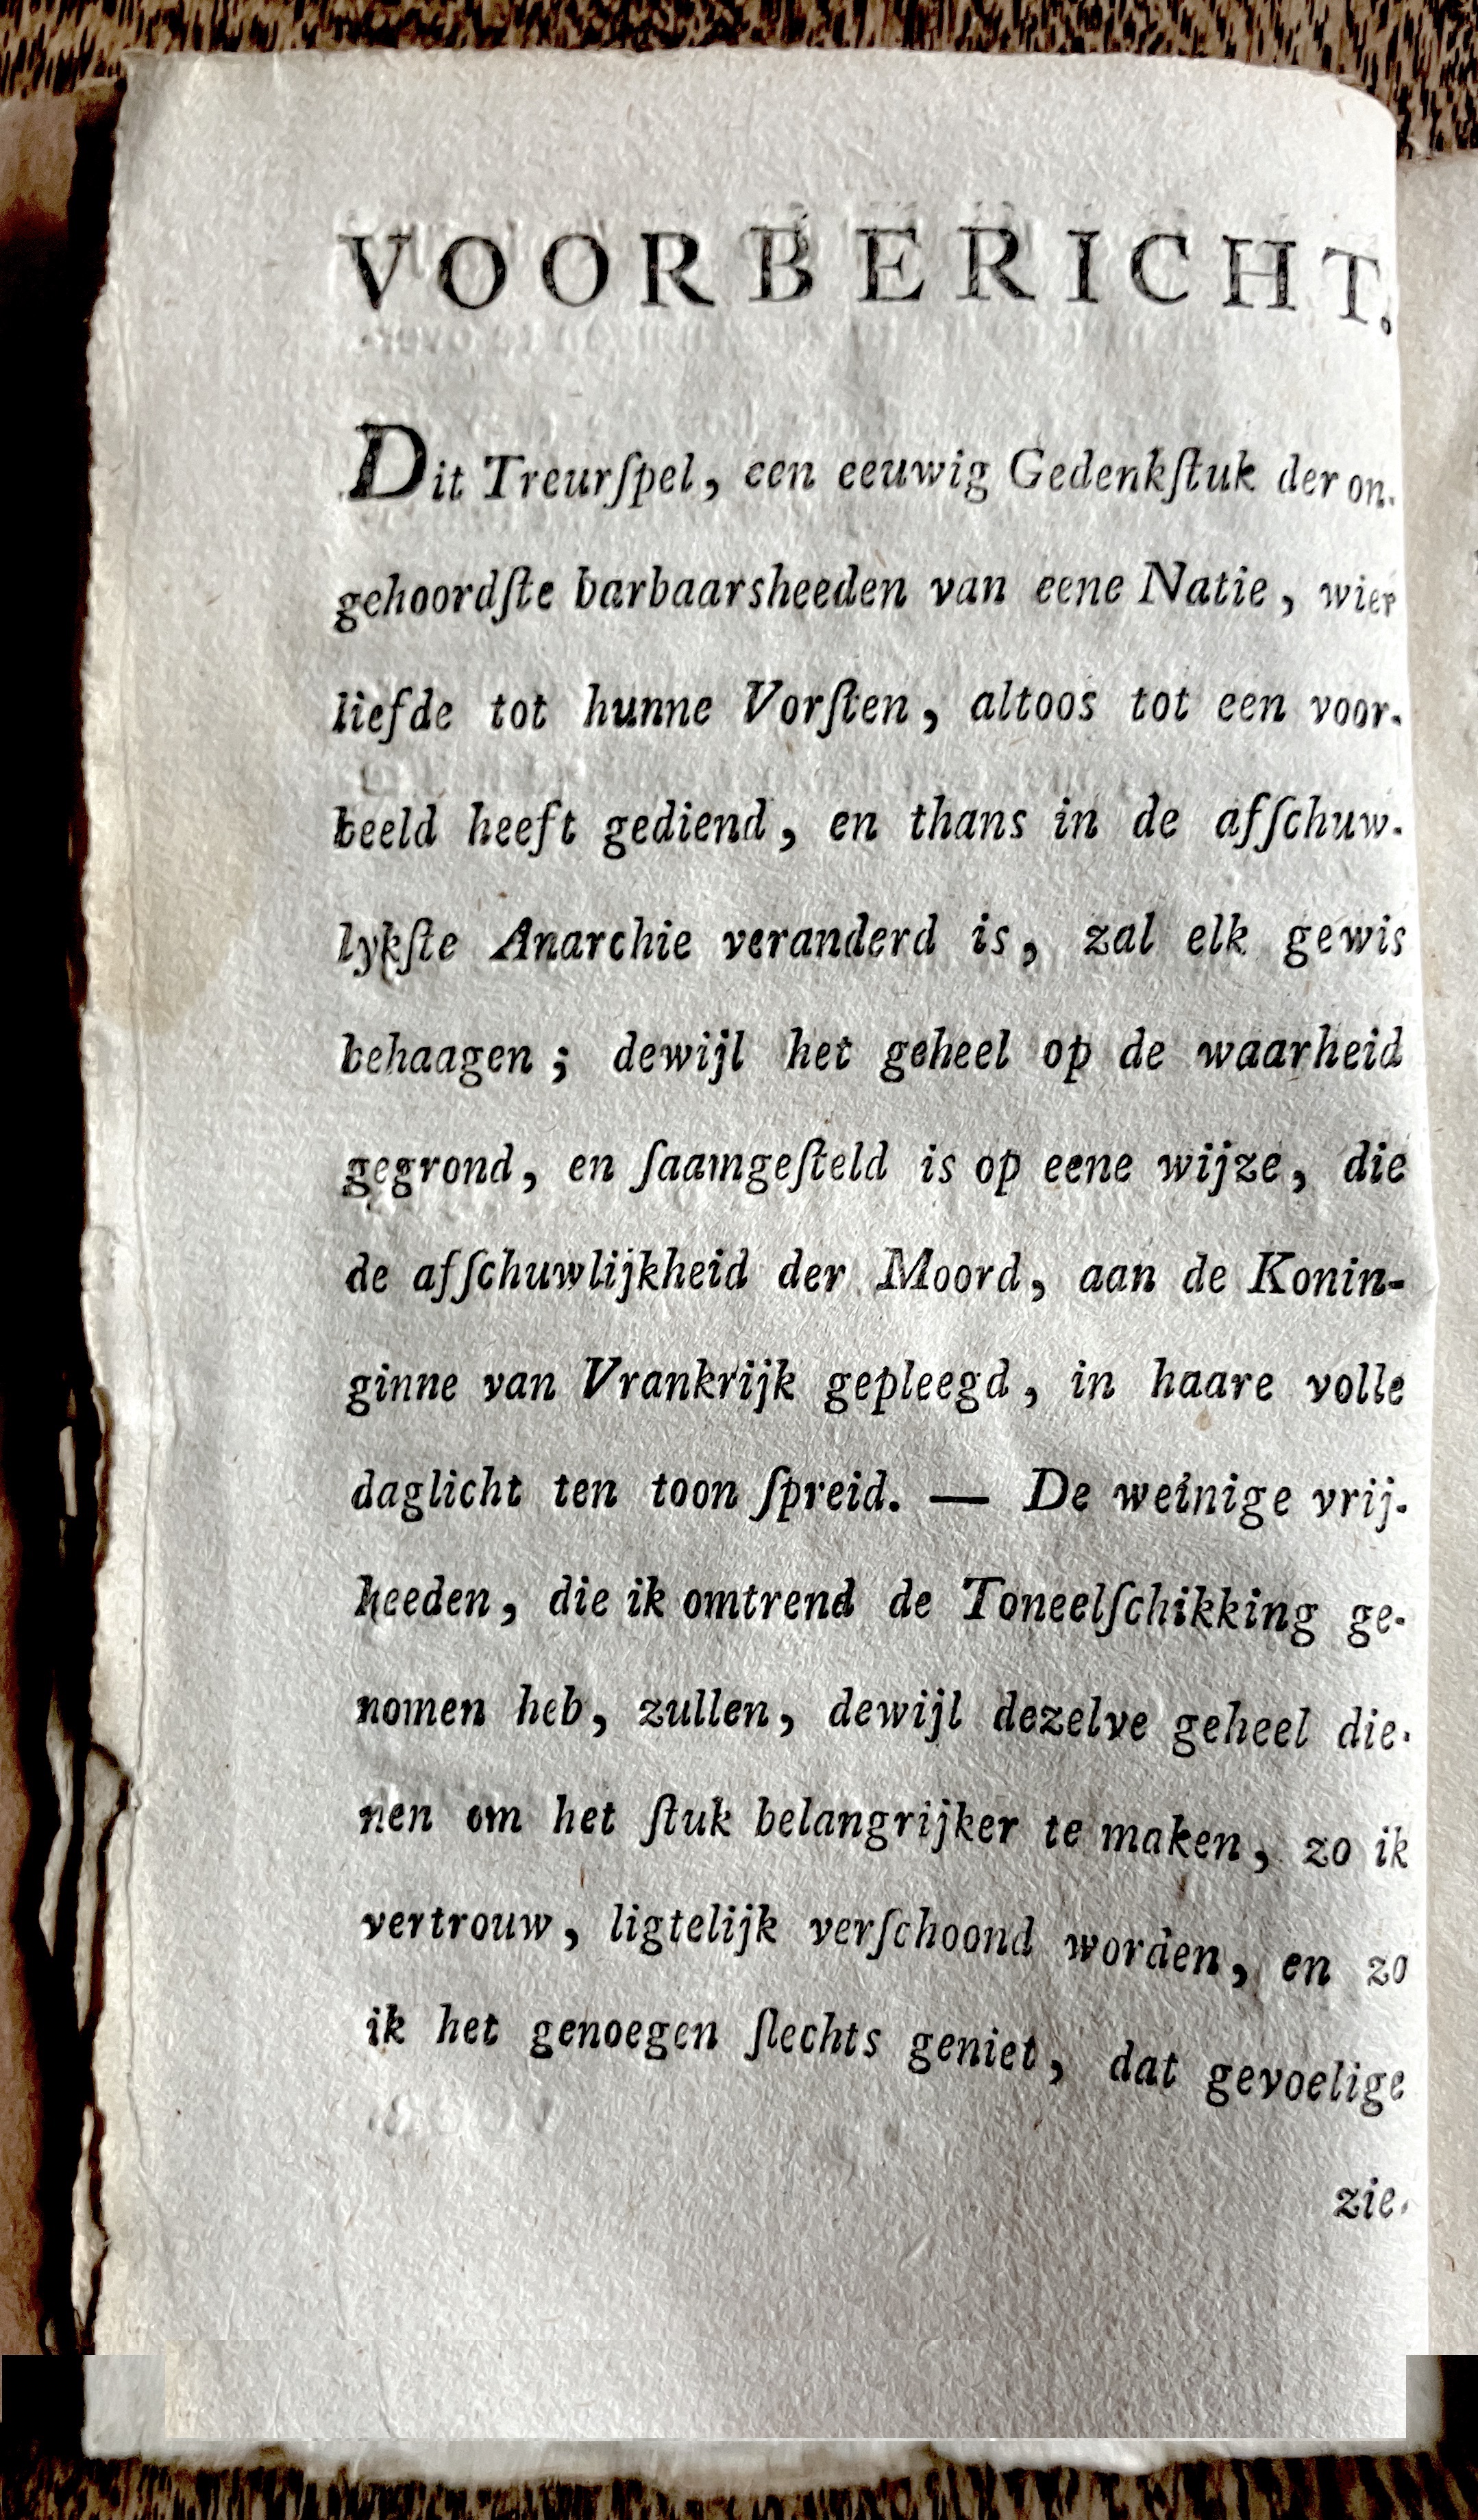 VOORBERICHT.
Dit Treurſpel, een eeuwig Gedenkſtuk der on-
gehoordſte barbaarsheeden van eene Natie, wier
liefde tot hunne Vorſten, altoos tot een voor-
beeld heeft gediend, en thans in de afſchuw-
lykſte Anarchie veranderd is, zal elk gewis
behaagen; dewijl het geheel op de waarheid
gegrond, en ſaamgeſteld is op eene wijze, die
de afſchuwlijkheid der Moord, aan de Konin-
ginne van Vrankrijk gepleegd, in haare volle
daglicht ten toon ſpreid. — De weinige vrij-
heeden, die ik omtrend de Toneelſchikking ge-
nomen heb, zullen, dewijl dezelve geheel die-
nen om het ſtuk belangrijker te maken, zo ik
vertrouw, ligtelijk verſchoond worden, en zo
ik het genoegen ſlechts geniet, dat gevoelige
zie-